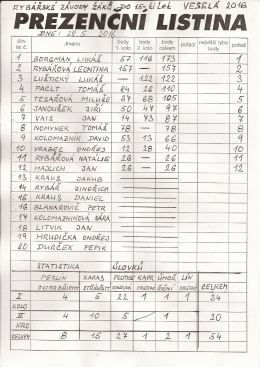 RYBÁŘSKÉ ZÁVODY ŽÁKŮ DO 15-ti let VESELÁ 2016
PREZENČNÍ LISTINA
DNE: 28.5. 2016
Jméno body 1. kolo body 2. kolo body celkem pořadí největší ryba body pořadí
1 BERGMAN LUKÁŠ 57 116 173 1
2 RYBÁŘOVÁ LEONTINA 157 — 157 2
3 LUŠTICKÝ LUKÁŠ — 122 122 3
4 PACLT TOMÁŠ 84 26 110 4
5 TESAŘOVÁ 37 68 105 5
6 JANOUŠEK JIŘÍ 50 47 97 6
7 VAIS JAN 14 73 87 7
8 NOMYNEK TOMÁŠ 78 — 78 8
9 KOLOMAZNÍK DAVID 53 13 66 9
10 VRABEC ONDŘEJ 12 28 40 10
11 RYBÁŘOVÁ NATÁLIE 26 — 26 11
12 HAJLICH JAN 26 — 26 12
13 KRAUS JAKUB
14 RYBÁŘ JINDŘICH
15 KRAUS DANIEL
16 BLANAROVIČ PETR
17 KOLOMAZNÍKOVÁ SÁRA
18 LITVIK JAN
19 HRUDIČKA ONDŘEJ
20 DURČEK PEPÍK
STATISTIKA ÚLOVKŮ
PERLÍN KARAS PLOTICE KAPR ÚHOŘ LÍN CELKEM
OSTROBŘICHÝ STŘÍBŘITÝ OBECNÁ OBECNÝ ŘÍČNÍ OBECNÝ
I KOLO 4 5 22 1 1 1 34
II KOLO 4 10 5 1 20
CELKEM 8 15 27 1 2 1 54